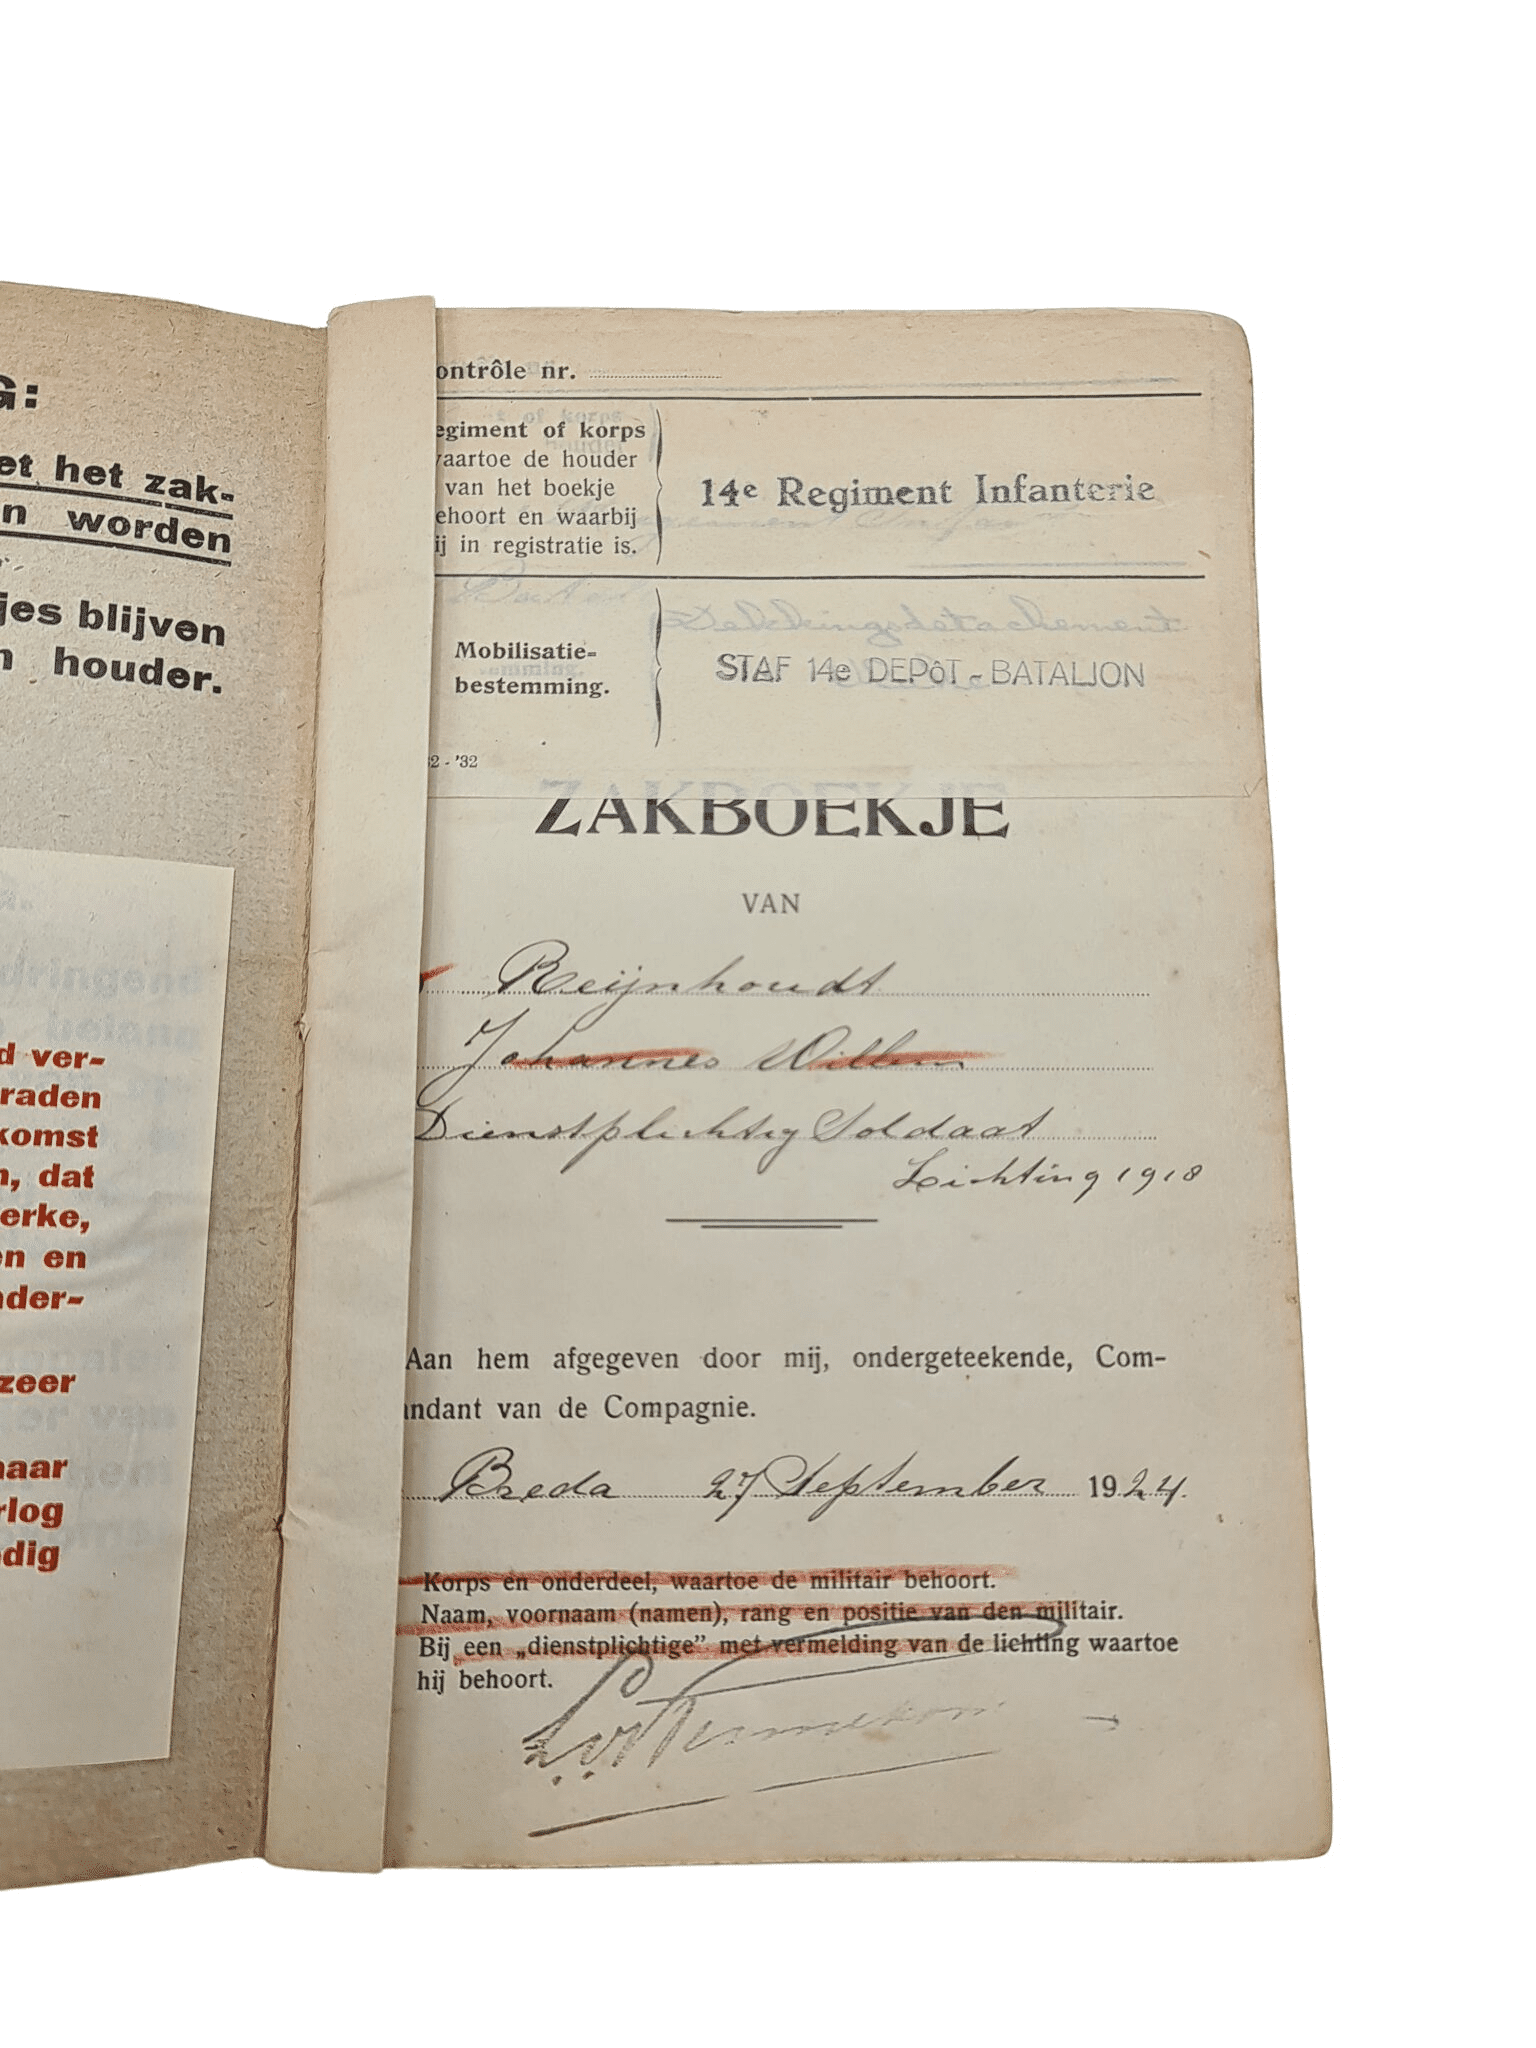 G:
et het zak-
n worden
jes blijven
n houder.
d ver-
raden
komst
n, dat
erke,
en en
nder-
zeer
naar
rlog
edig
ontrôle nr.
egiment of korps
vaartoe de houder
van het boekje
ehoort en waarbij
ij in registratie is.
14e Regiment Infanterie
Mobilisatie-
bestemming.
Dekkingsdetachement
STAF 14e DEPôT - BATALJON
2 - '32
ZAKBOEKJE
VAN
Reijnhoudt
Johannes Willem
Dienstplichtig Soldaat
Lichting 1918
Aan hem afgegeven door mij, ondergeteekende, Com-
ndant van de Compagnie.
Breda 27 September 1924.
Korps en onderdeel, waartoe de militair behoort.
Naam, voornaam (namen), rang en positie van den militair.
Bij een „dienstplichtige" met vermelding van de lichting waartoe
hij behoort.